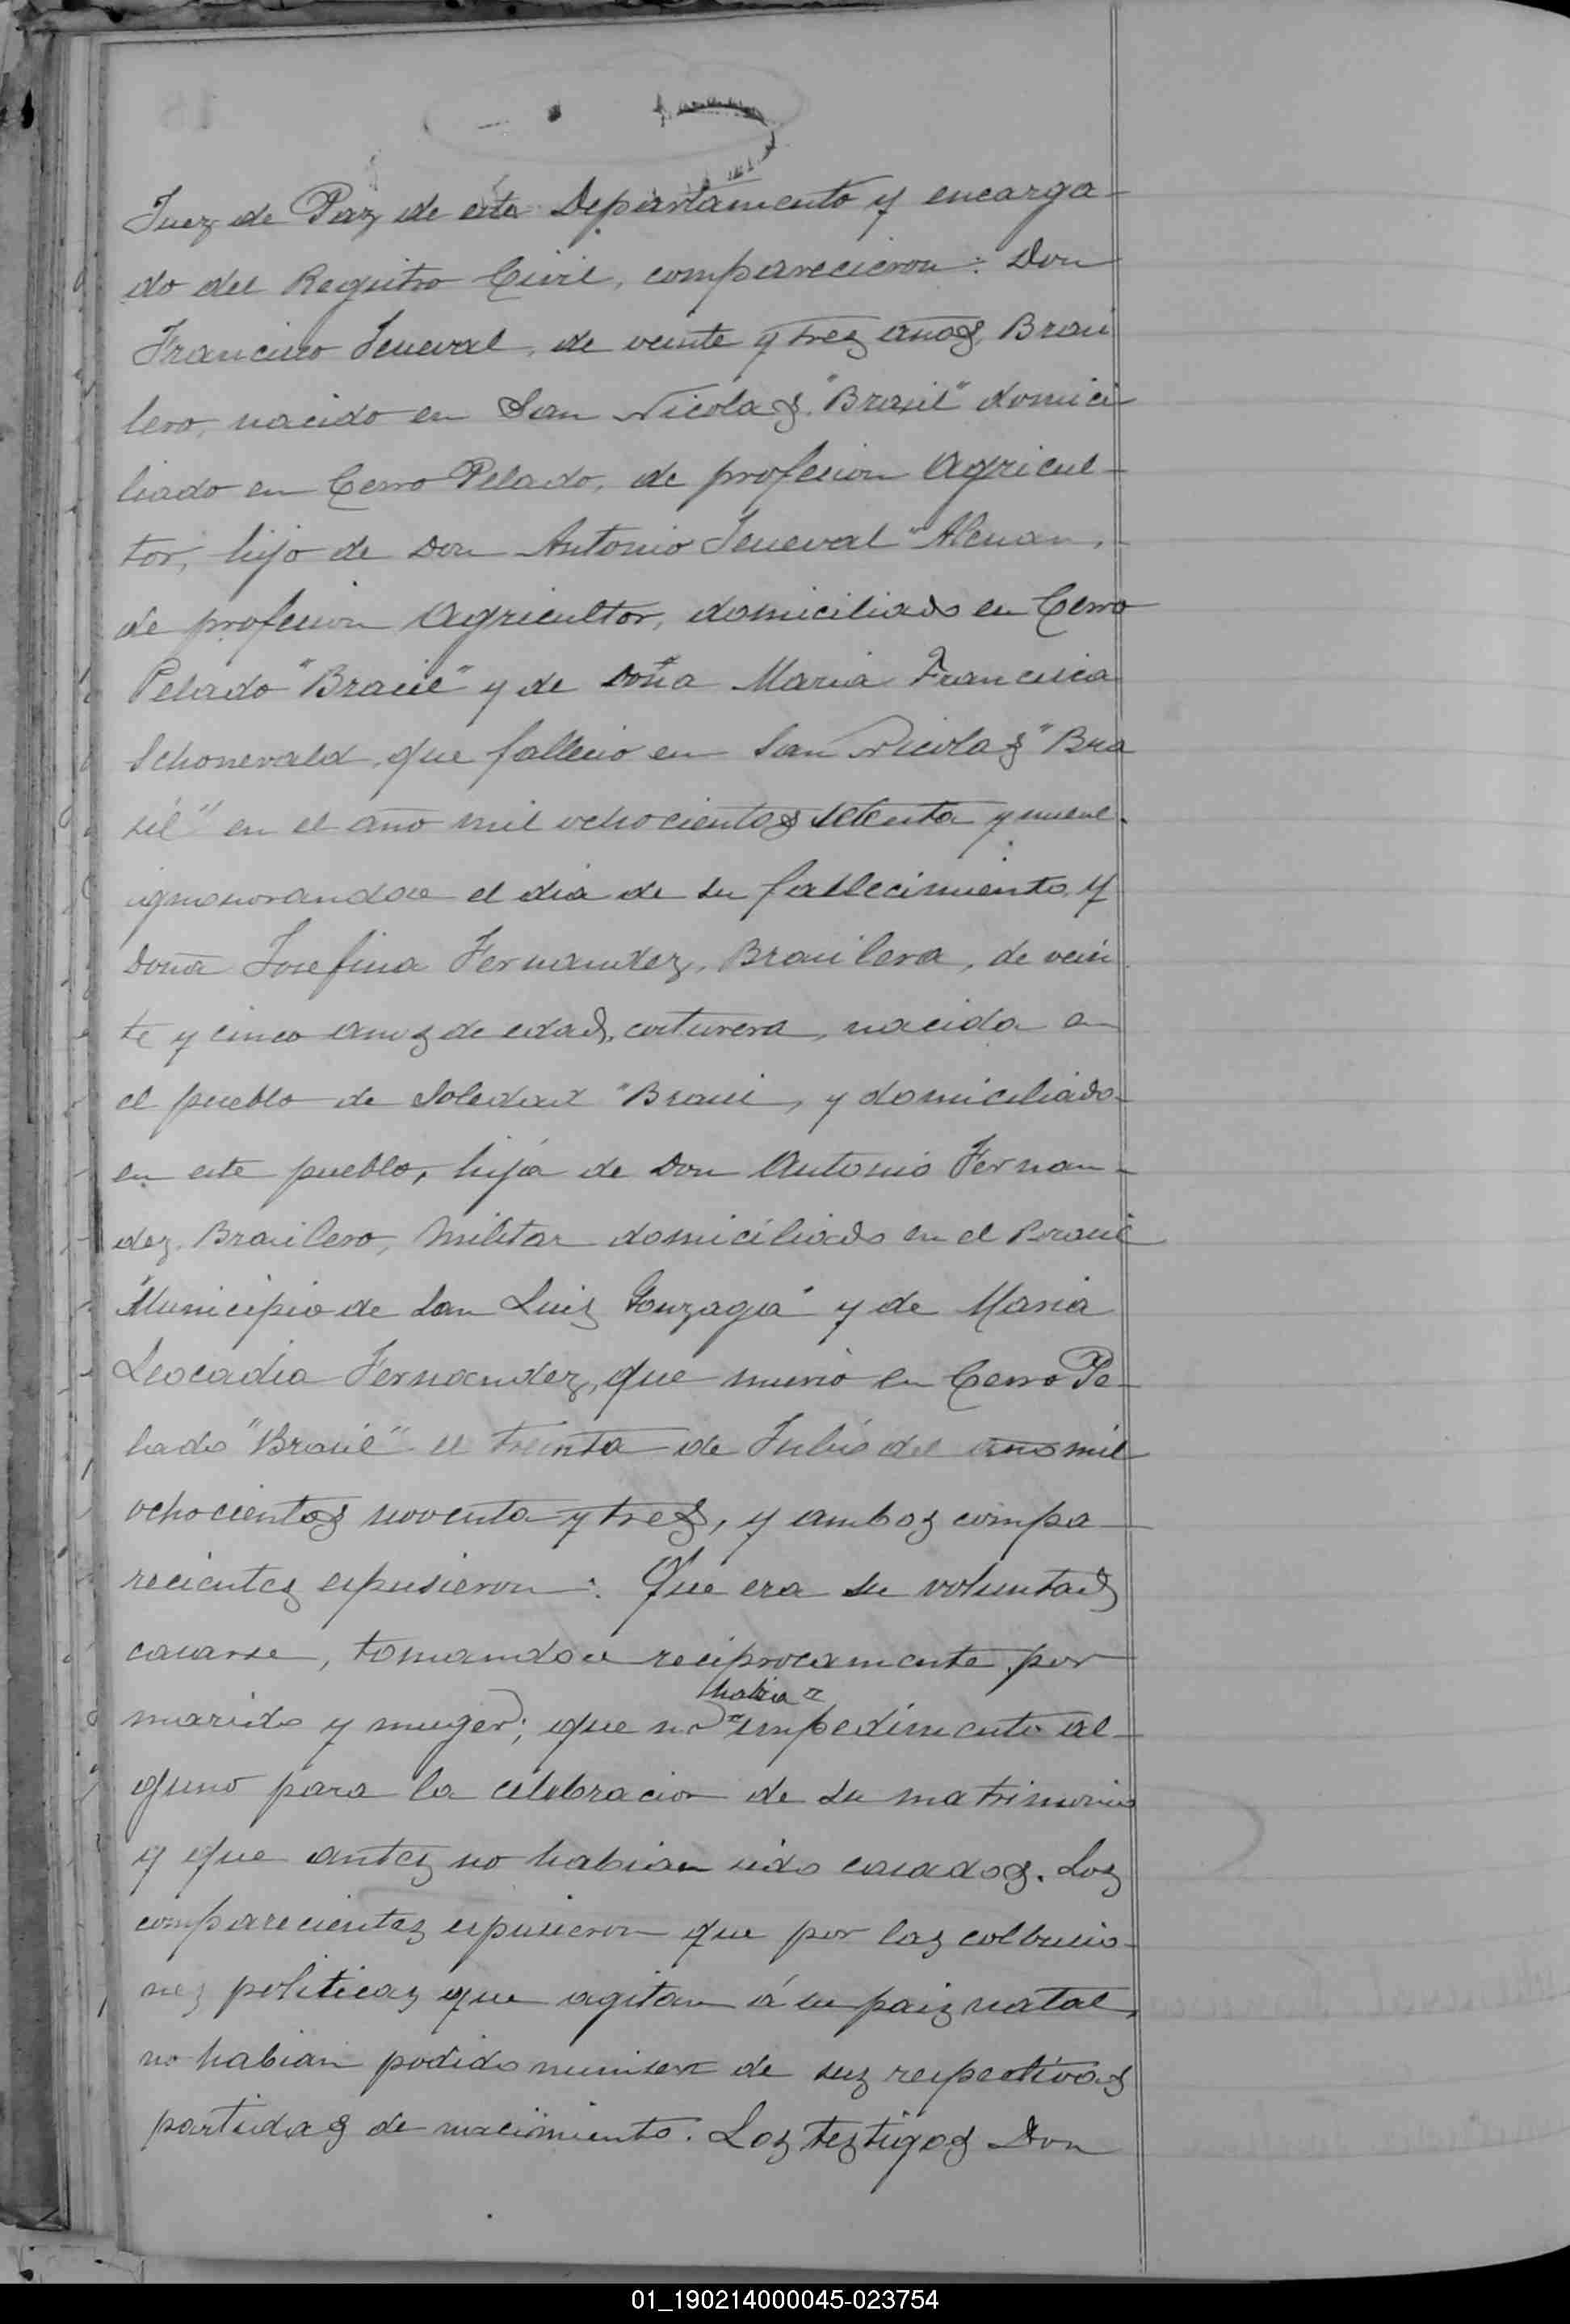 Juez de Paz de este Departamento y encarga-
do del Registro Civil, comparecieron: Don
Francisco Seneval, de veinte y tres años, Brasi
lero, nacido en San Nicolas "Brasil" domici
liado en Cerro Pelado, de profesion Agricul-
tor, hijo de Don Antonio Seneval "Aleman,
de profesion Agricultor, domiciliado en Cerro
Pelado "Brasil" y de Doña Maria Francisca
Schonevald, que fallecio en San Nicolas "Bra
sil" en el año mil ochocientos setenta y nueve
ignonorandose el dia de su fallecimiento, y
Doña Josefina Fernandez, Brasilera, de vein
te y cinco anos de edad, costurera, nacida en
el pueblo de Soledad "Brasil, y domiciliado
en este pueblo, hija de Don Antonio Fernan-
dez, Brasilero, Militar domiciliado en el Brasil
"Municipio de San Luis Gonzaga" y de Maria
Leocadia Fernandez, que murio en Cerro Pe-
lado "Brasil" el treinta de Julio del ano mil
ochocientos noventa y tres, y ambos compa
recientes espusieron: Que era su voluntad
casarse, tomandose reciprocamente por
habia
marido y muger; que no impedimento al-
guno para la celebracion de su matrimonio
y que antes no habian sido casados. Los
comparecientes espusieron que por las
nes politicas que agitan á su pais natal,
no habian podido munirse de sus respectivas
partidas de nacimiento. Los testigos Don
01_190214000045-023754